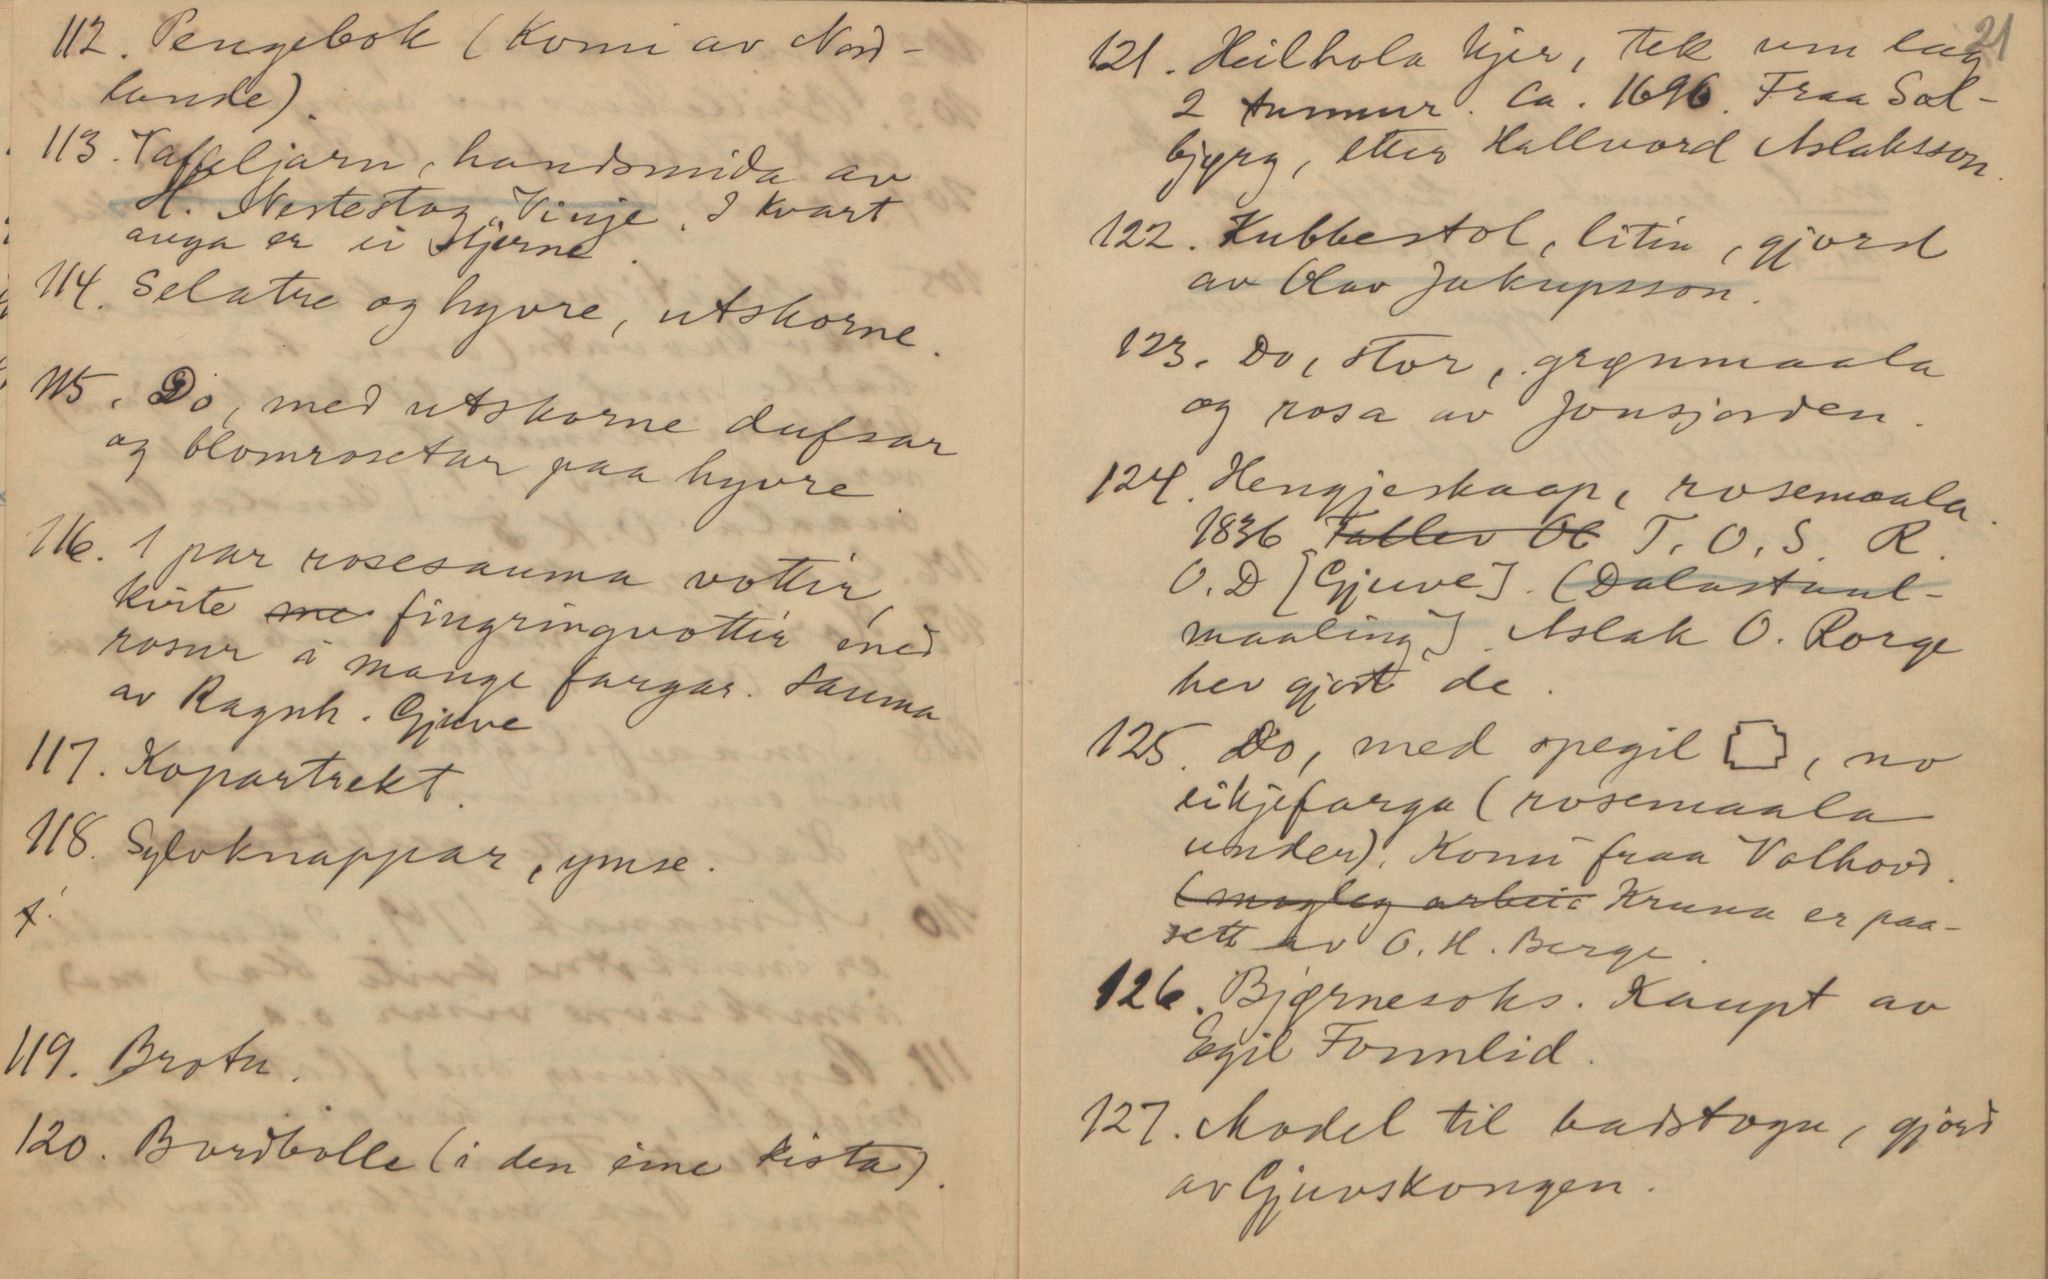 112. Pengebok (Komi av Nord-
lande).
113. Vaffeljarn, handsmida av
H. Nestestog, Vinje. I kvart
auga er ei stjerne.
114. Selatre og hyvre, utskorne.
115. Do, med utskorne dufsar
og blomrosetar paa hyvre
116. 1 par rosesauma vottir,
kvite me fingringvottir med
rosur i mange fargar. Sauma
av Ragnh. Gjuve
117. Kopartrekt.
118. Sylvknappar, ymse.
119. Brotu.
120. Bordbolle (i den eine kista).
21
121. Heilhola kjer, tek um lag
2 tunnur. Ca. 1696. Fraa Sol-
bjørg, etter Hallvord Aslaksson.
122. Kubbestol, litin, gjord
av Olav Jakupsson.
123. Do, stor, grønmaala
og rosa av Jonsjorden.
124. Hengjeskaap, rosemaala.
1836 Tallev Ol T. O. S. R.
O. D [Gjuve]. (Dalastaul-
maaling]. Aslak O. Rorge
hev gjort de.
125. Do, med spegil, no
eikjefarga (rosemaala
under). Komi fraa Valhovd.
(mogleg arbeid Kruna er paa-
sett av O. H. Berge.
126. Bjørnesoks. Kaupt av
Egil Formlid.
127. Model til badstogu, gjord
av Gjuvskongen.